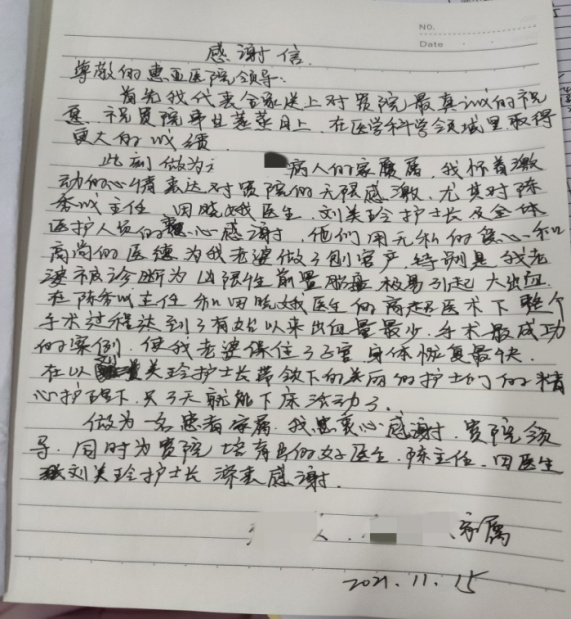 NO.
Date
感谢信
尊敬的惠亚医院领导:
首先我代表全家送上对贵院最真诚的祝
愿,祝贵院事业蒸蒸日上,在医学科学领域里取得
更大的成绩
此刻做为 病人的家属,我怀着激
动的心情表达对贵院的无限感激,尤其对陈
秀 主任 田晓娥医生 刘美玲护士长及全体
医护人员的衷心感谢,他们用无私的爱心和
高尚的医德为我老婆做了剖宫产,特别是我老
婆被诊断为凶险性前置胎盘极易引起大出血
在陈秀 主任和田晓娥医生的高超医术下整个
手术过程达到了有史以来出血量最少,手术最成功
的案例,使我老婆保住了子宫身体恢复最快.
在以刘美玲护士长带领下的美丽的护士们的精
心护理下,只3天就能下床活动了.
做为一名患者家属,我衷心感谢,贵院领
导,同时为贵院培育出的好医生,陈主任,田医生
刘美玲护士长 深表感谢.
人. 家属
2021.11.15